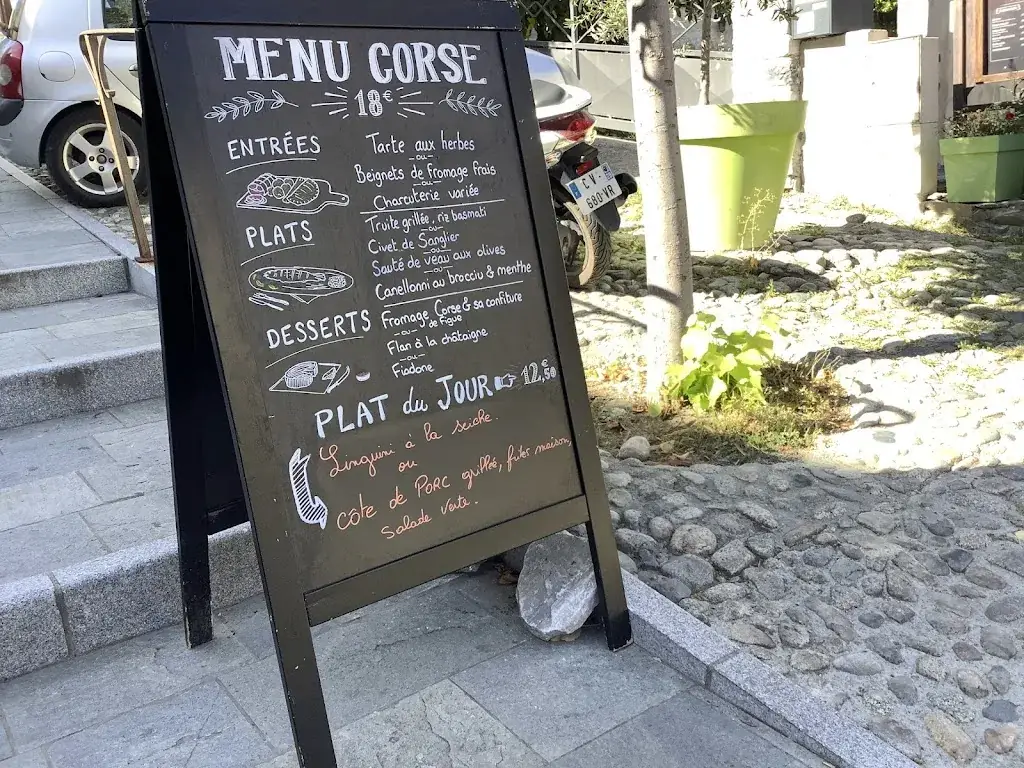 MENU CORSE
18€
ENTRÉES
Tarte aux herbes
-ou-
Beignets de fromage frais
-ou-
Charcuterie variée
PLATS
Truite grillée, riz basmati
-ou-
Civet de Sanglier
-ou-
Sauté de veau aux olives
-ou-
Canellonni au brocciu & menthe
DESSERTS
Fromage Corse & sa confiture
de figue
-ou-
Flan à la châtaigne
-ou-
Fiadone
PLAT du JOUR 12,50€
Linguini à la seiche
ou
Côte de Porc grillée, frites maison,
Salade Verte.
CV-
680-VR